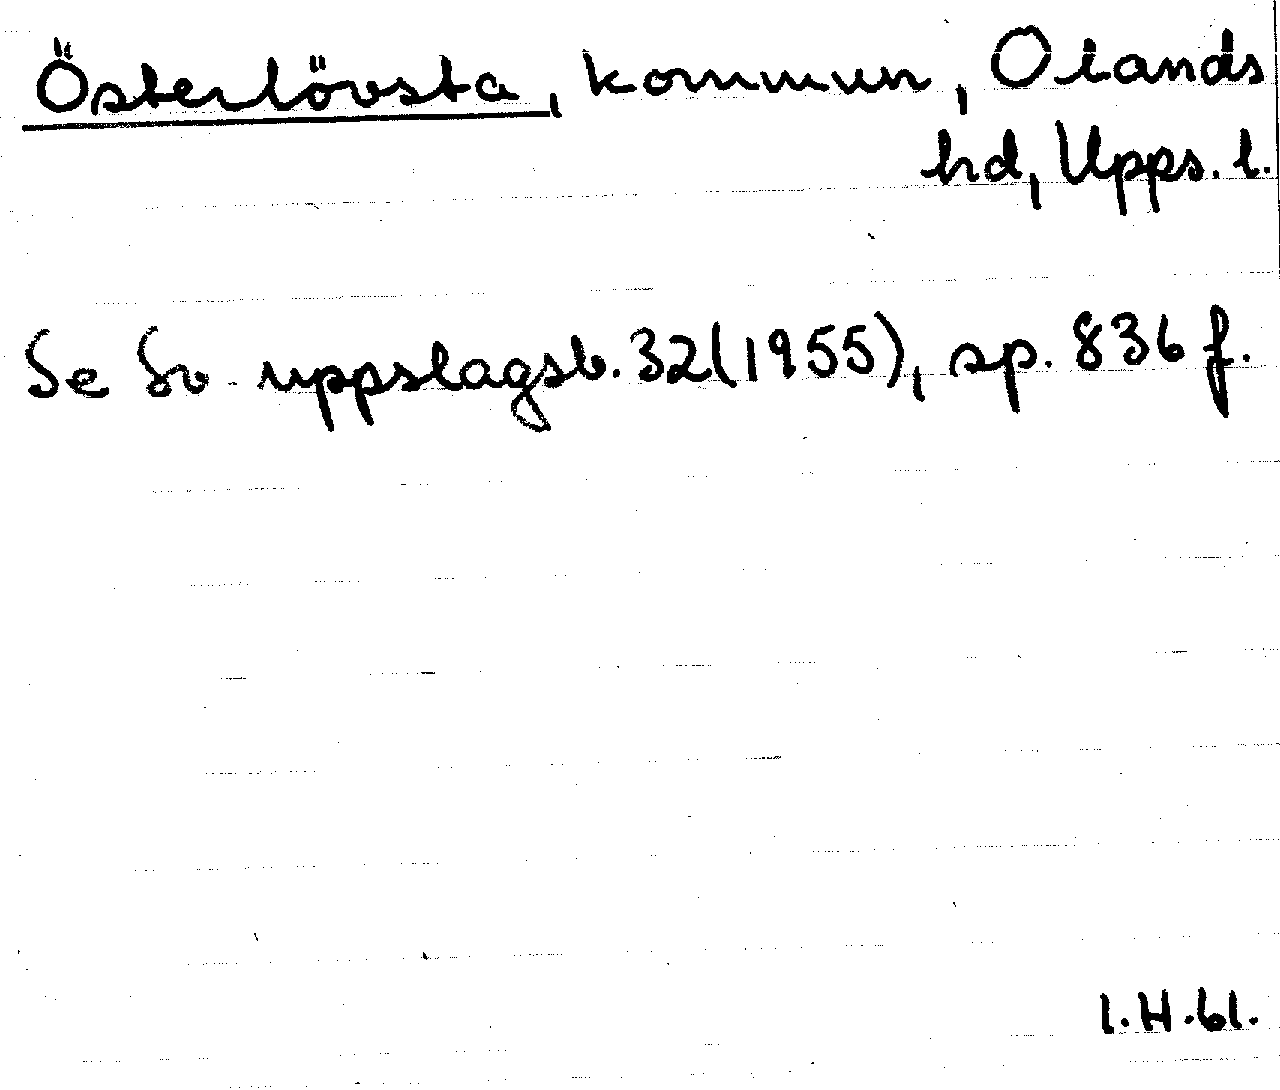 Österlövsta, kommun, Olands
hd, Upps. l.
Se Sv. uppslagsb. 32(1955), sp. 836 f.
I.H.61.